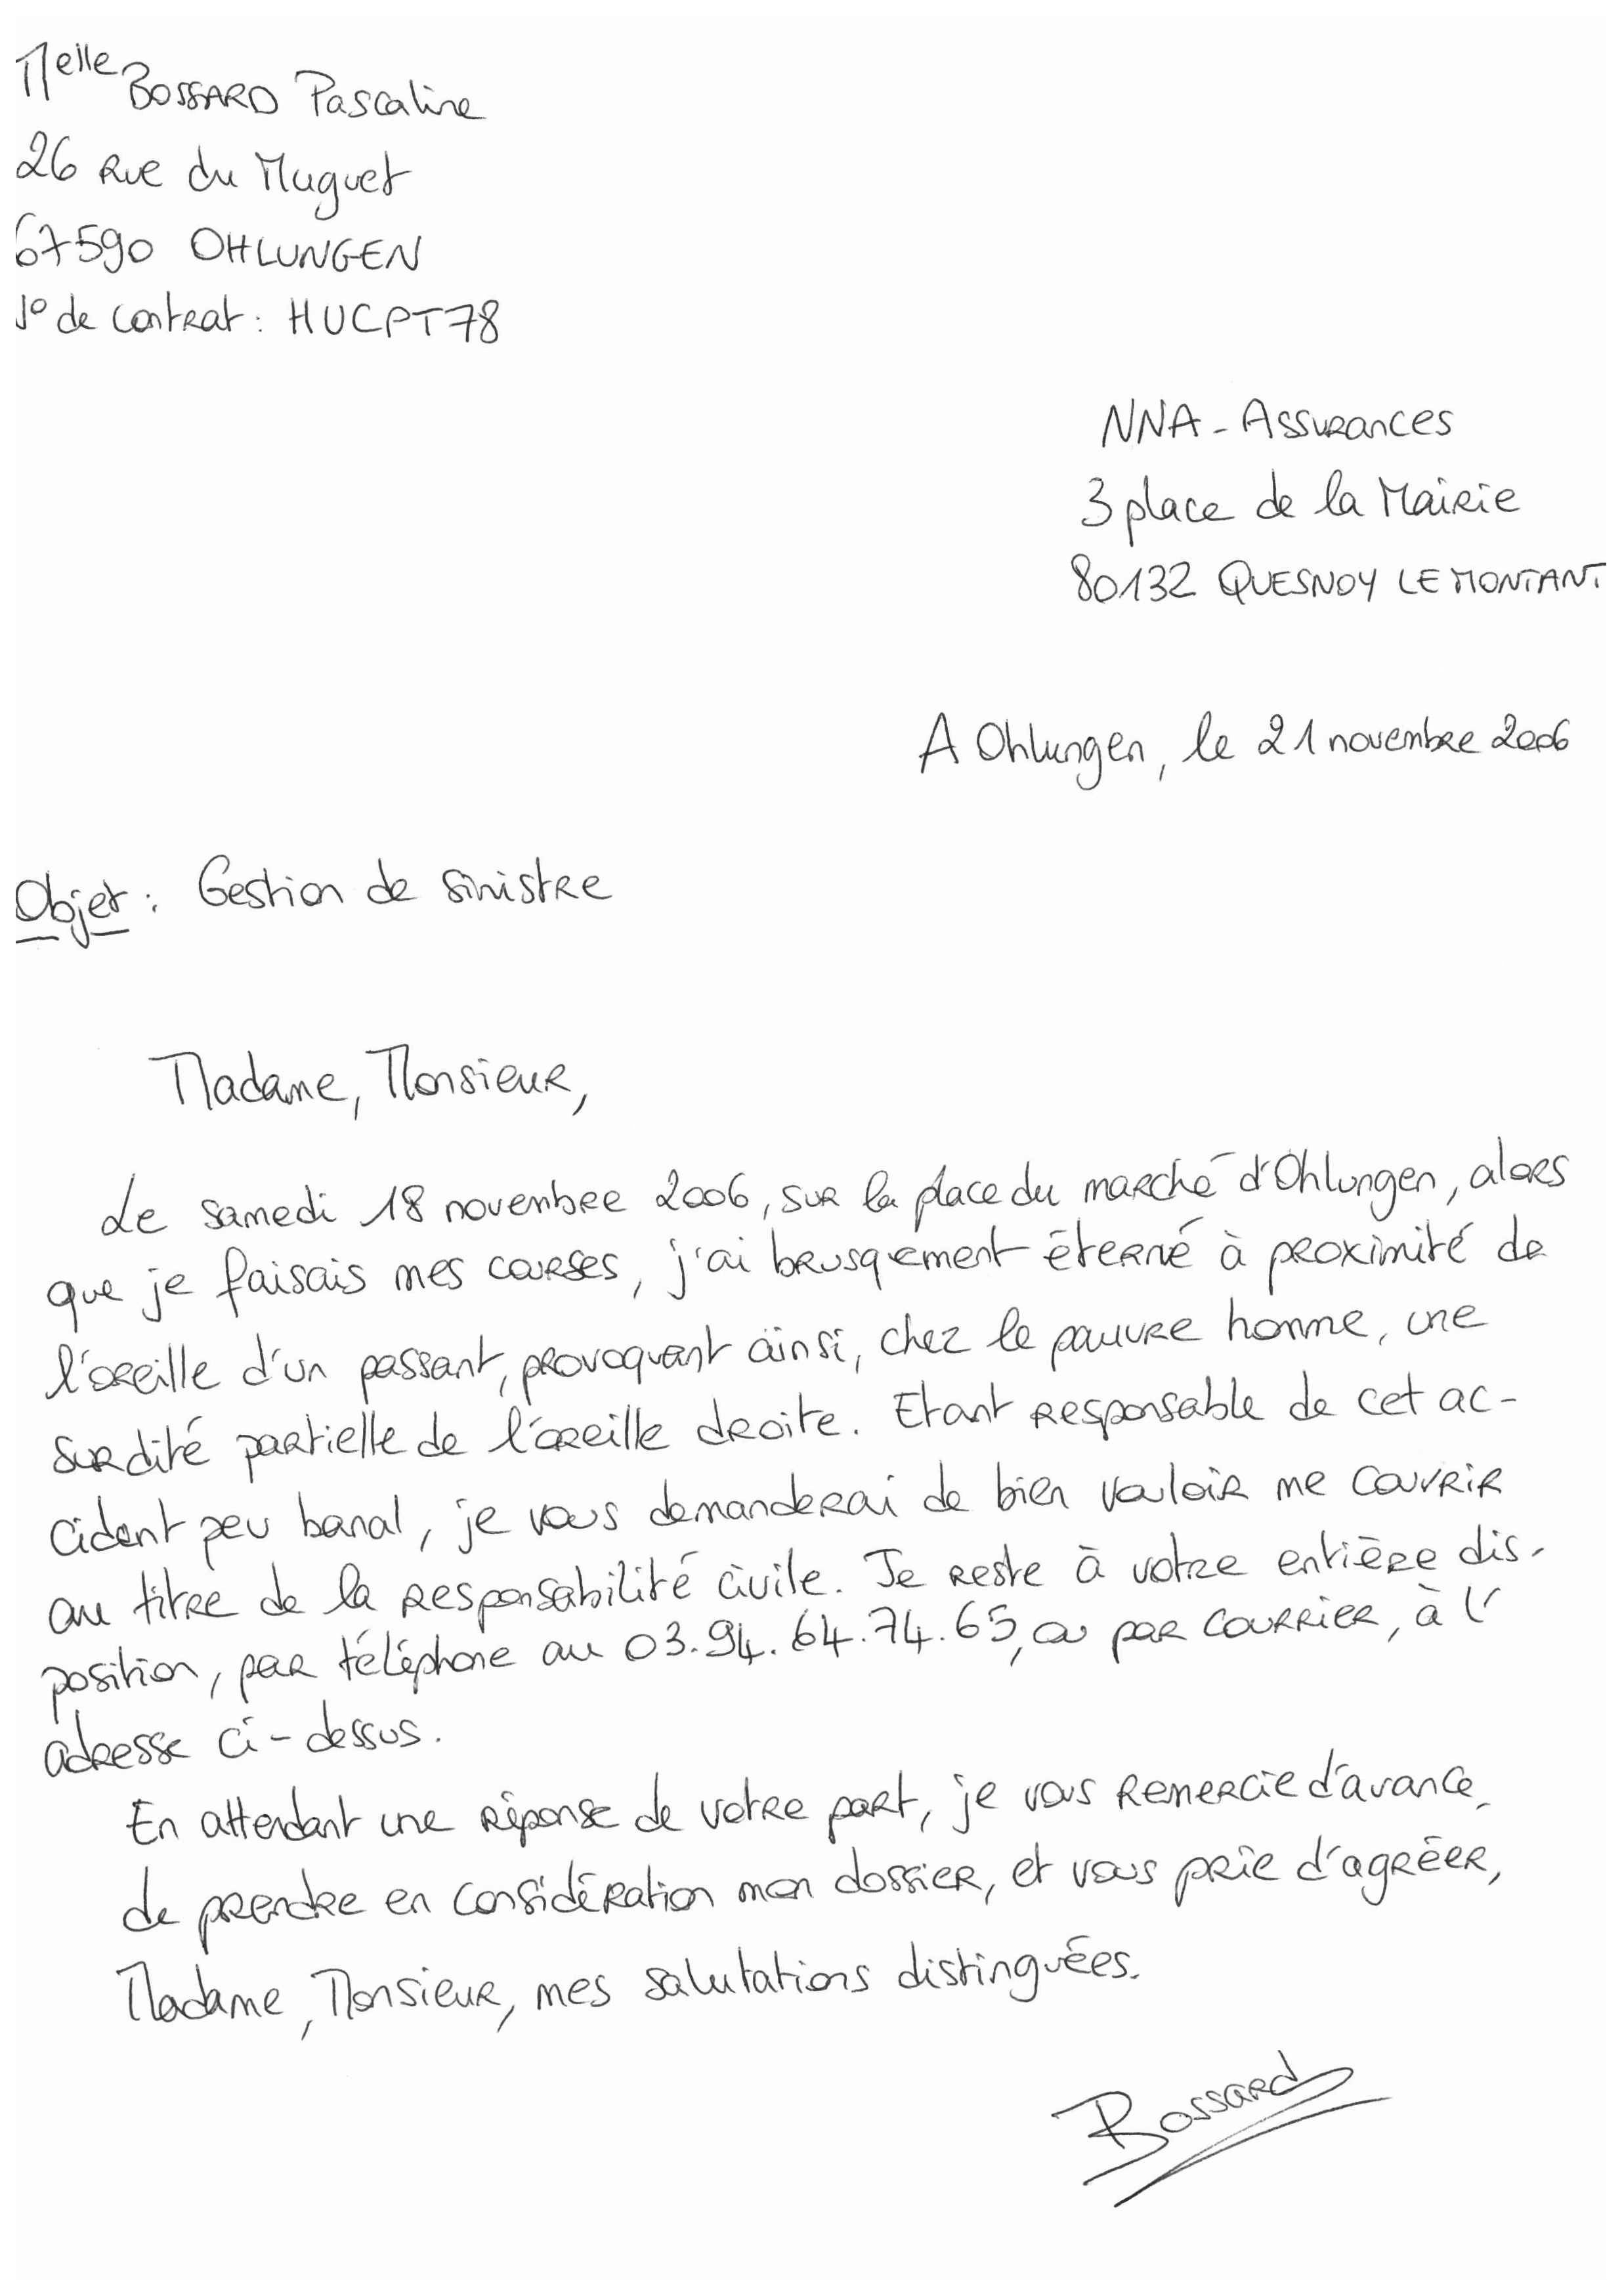 Melle BOSSARD Pascaline
26 Rue du Muguet
67590 OHLUNGEN
N° de contrat : HUCPT78
NNA - Assurances
3 place de la Mairie
80132 QUESNOY LE MONTANT
A Ohlungen, le 21 novembre 2006
Objet : Gestion de sinistre
Madame, Monsieur,
Le samedi 18 novembre 2006, sur la place du marché d'Ohlungen, alors
que je faisais mes courses, j'ai brusquement éterné à proximité de
l'oreille d'un passant, provoquant ainsi, chez le pauvre homme, une
surdité partielle de l'oreille droite. Etant responsable de cet ac-
cident peu banal, je vous demanderai de bien vouloir me couvrir
au titre de la responsabilité civile. Je reste à votre entière dis-
position, par téléphone au 03.94.64.74.65, ou par courrier, à l'
adresse ci-dessus.
En attendant une réponse de votre part, je vous remercie d'avance,
de prendre en considération mon dossier, et vous prie d'agréer,
Madame, Monsieur, mes salutations distinguées.
Bossard